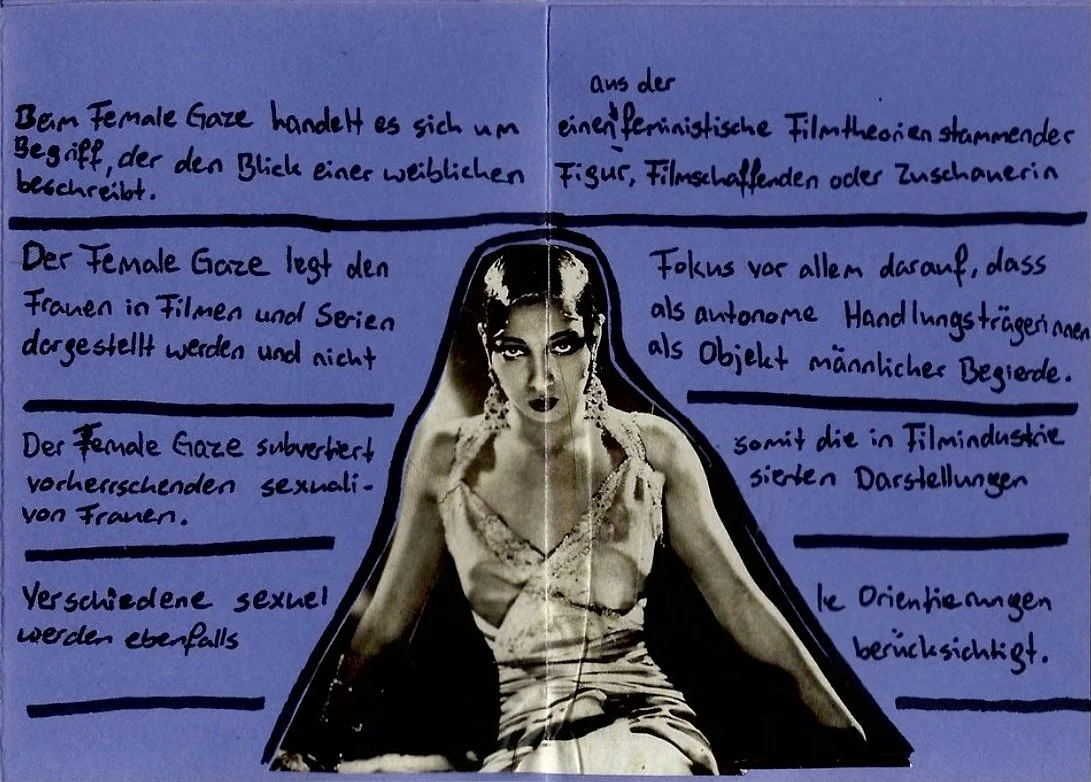 Beim Female Gaze handelt es sich um einen aus der feministische Filmtheorien stammender
Begriff, der den Blick einer weiblichen Figur, Filmschaffenden oder Zuschauerin
beschreibt.
Der Female Gaze legt den Fokus vor allem darauf, dass
Frauen in Filmen und Serien als autonome Handlungsträgerinnen
dargestellt werden und nicht als Objekt männlicher Begierde.
Der Female Gaze subvertiert somit die in Filmindustrie
vorherrschenden sexuali- sierten Darstellungen
von Frauen.
Verschiedene sexuel le Orientierungen
werden ebenfalls berücksichtigt.